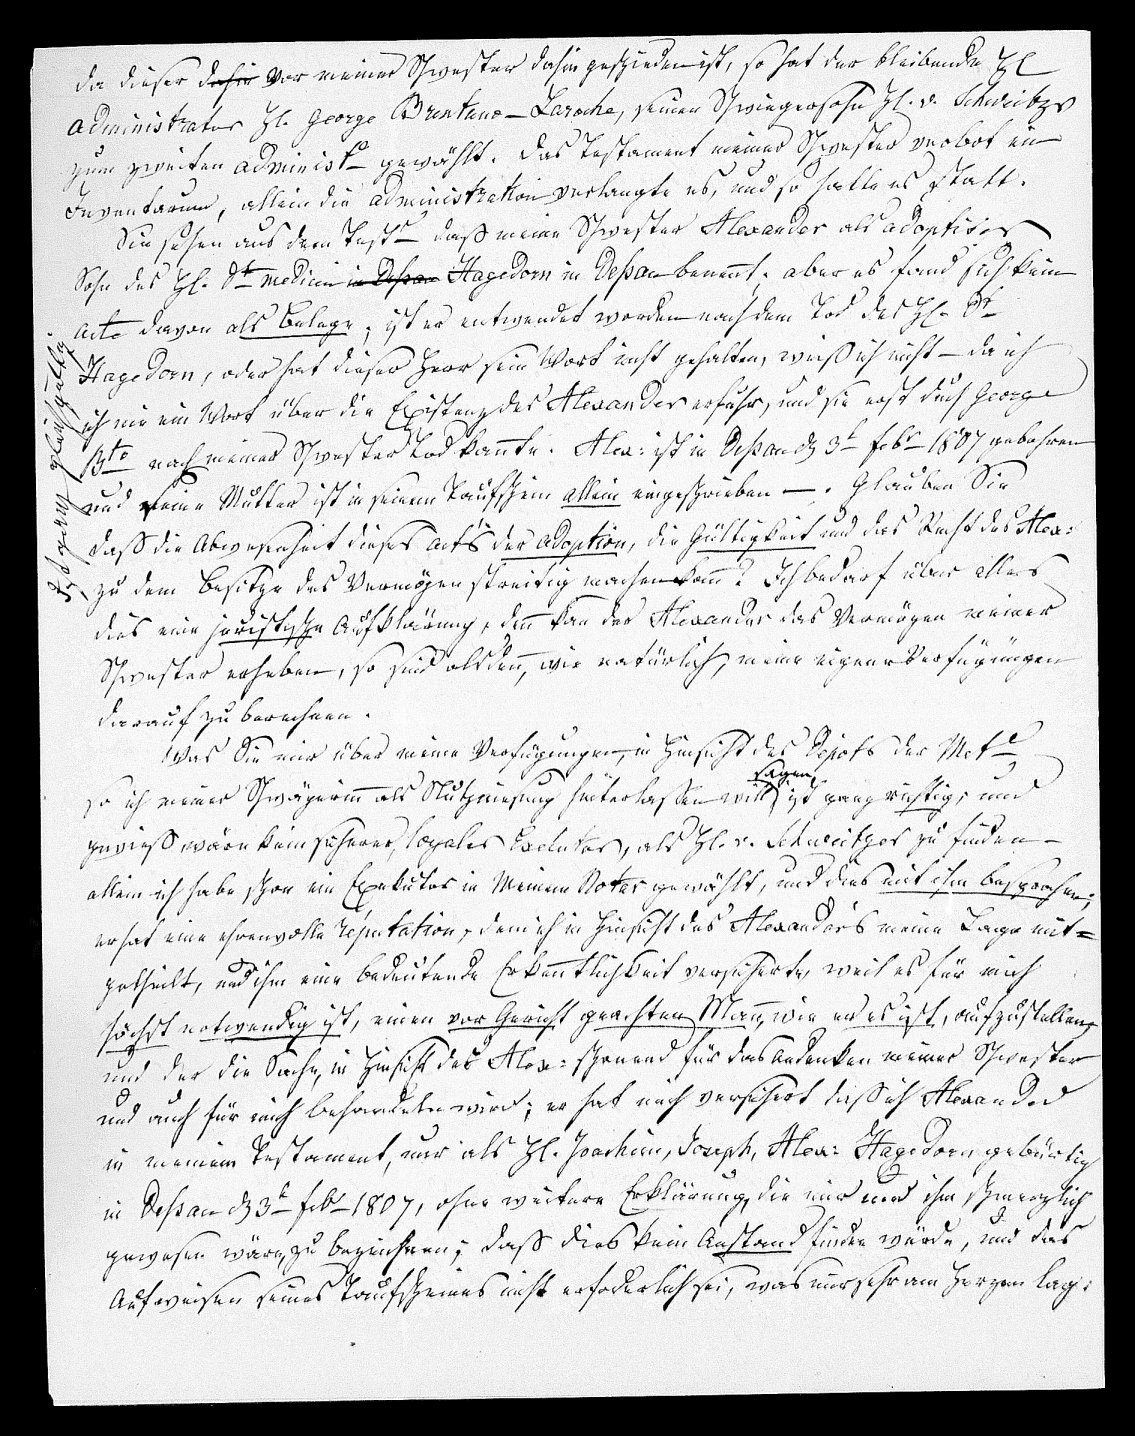 da dieser dahin vor meiner Schwester dahin geschieden ist, so hat der bleibende Hl
Administrator Hl. George Brentano-Laroche, seinen Schwiegersohn Hl. v. Schweitzer
zum zweiten Administr gewählt. Das Testament meiner Schwester verbot ein
Inventarium, allein die Administration verlangte es, und so hatte es statt.
Sie sehen aus dem Test daß meine Schwester Alexander als adoptiver
Sohn des Hl. Dr Medicin in Dessau Hagedorn in Dessau benennt. aber es fand sich kein
Acte davon als Belege, ist er entwendet worden nach dem Tod des Hl. Dr
Hagedorn, oder hat dieser Herr sein Wort nicht gehalten, weiß ich nicht – da ich
ich nie ein Wort über die Existenz des Alexander erfuhr, und sie erst durch George
Bto nach meiner Schwester Tod kannte. Alex: ist in Dessau d 3t febr 1807 gebohren
und seine Mutter ist in seinem Taufschein allein eingeschrieben –. Glauben Sie
daß die Abwesenheit dieses Acts der Adoption, die Gültigkeit und das Recht des Alex:
zu dem Besitze des Vermögen streitig machen kann? Ich bedarf über alles
dies eine juristische Aufklärung, denn kan der Alexander das Vermögen meiner
Schwester erheben, so sind alsdenn, wie natürlich, meine eigene Verfügungen
darauf zu berechnen.
Was Sie mir über meine Verfügungen, in Hinsicht des Depots der Met
so ich meiner Schwägerinn als Nutzniesung hinterlassen will sagen, ist ganz richtig, und
gewiß wäre kein sicherer, loyaler Executor, als Hl. v. Schweitzer zu finden –
allein ich habe schon ein Exekutor in Meinem Notar gewählt, und dies mit ihm besprochen;
er hat eine ehrenvolle réputation, dem ich in Hinsicht des Alexander's meine Lage mit=
getheilt, und ihm eine bedeutende Erkenntlichkeit versicherte, weil es für mich
höchst notwendig ist, einen vor Gericht geachten Mann, wie er es ist, aufzustellen,
und der die Sache, in Hinsicht des Alex: schonend für das Andenken meiner Schwester
und auch für mich behandeln wird; er hat mich versichert daß ich Alexander
in meinem Testament, nur als Hl. Joachim, Joseph, Alex: Hagedorn, gebürtig
in Dessau d 3t febr 1807, ohne weitere Erklärung, die mir und ihm schmerzlich
gewesen wäre, zu bezeichnen; daß dies kein Anstand finden würde, und das
Aufweisen seines Taufscheines nicht erfoderlich sei, was mir sehr am Herzen lag.